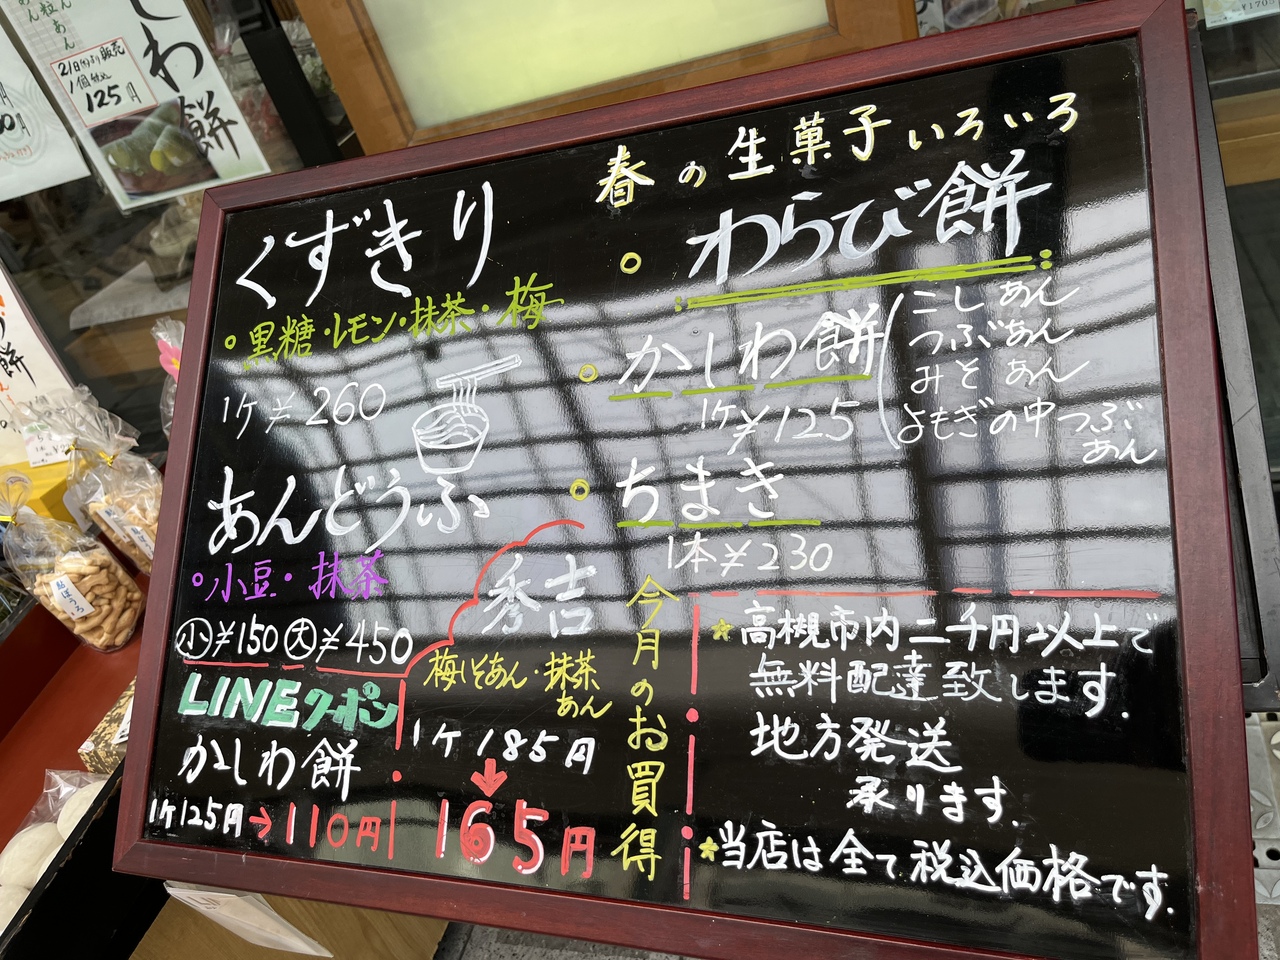 春の生菓子いろいろ
くずきり
・黒糖・レモン・抹茶・梅
1ケ¥260
あんどうふ
・小豆・抹茶
小¥150 大¥450
LINEクーポン
かしわ餅
1ケ125円→110円
秀吉
梅しそあん・抹茶
あん
1ケ185円
↓
165円
今月のお買得
わらび餅
かしわ餅
1ケ¥125
こしあん
つぶあん
みそあん
よもぎの中つぶ
あん
ちまき
1本¥230
★高槻市内二千円以上で
無料配達致します.
地方発送
承ります.
★当店は全て税込価格です.
しわ餅
粒あん
21日㈫より販売
1個税込
125円